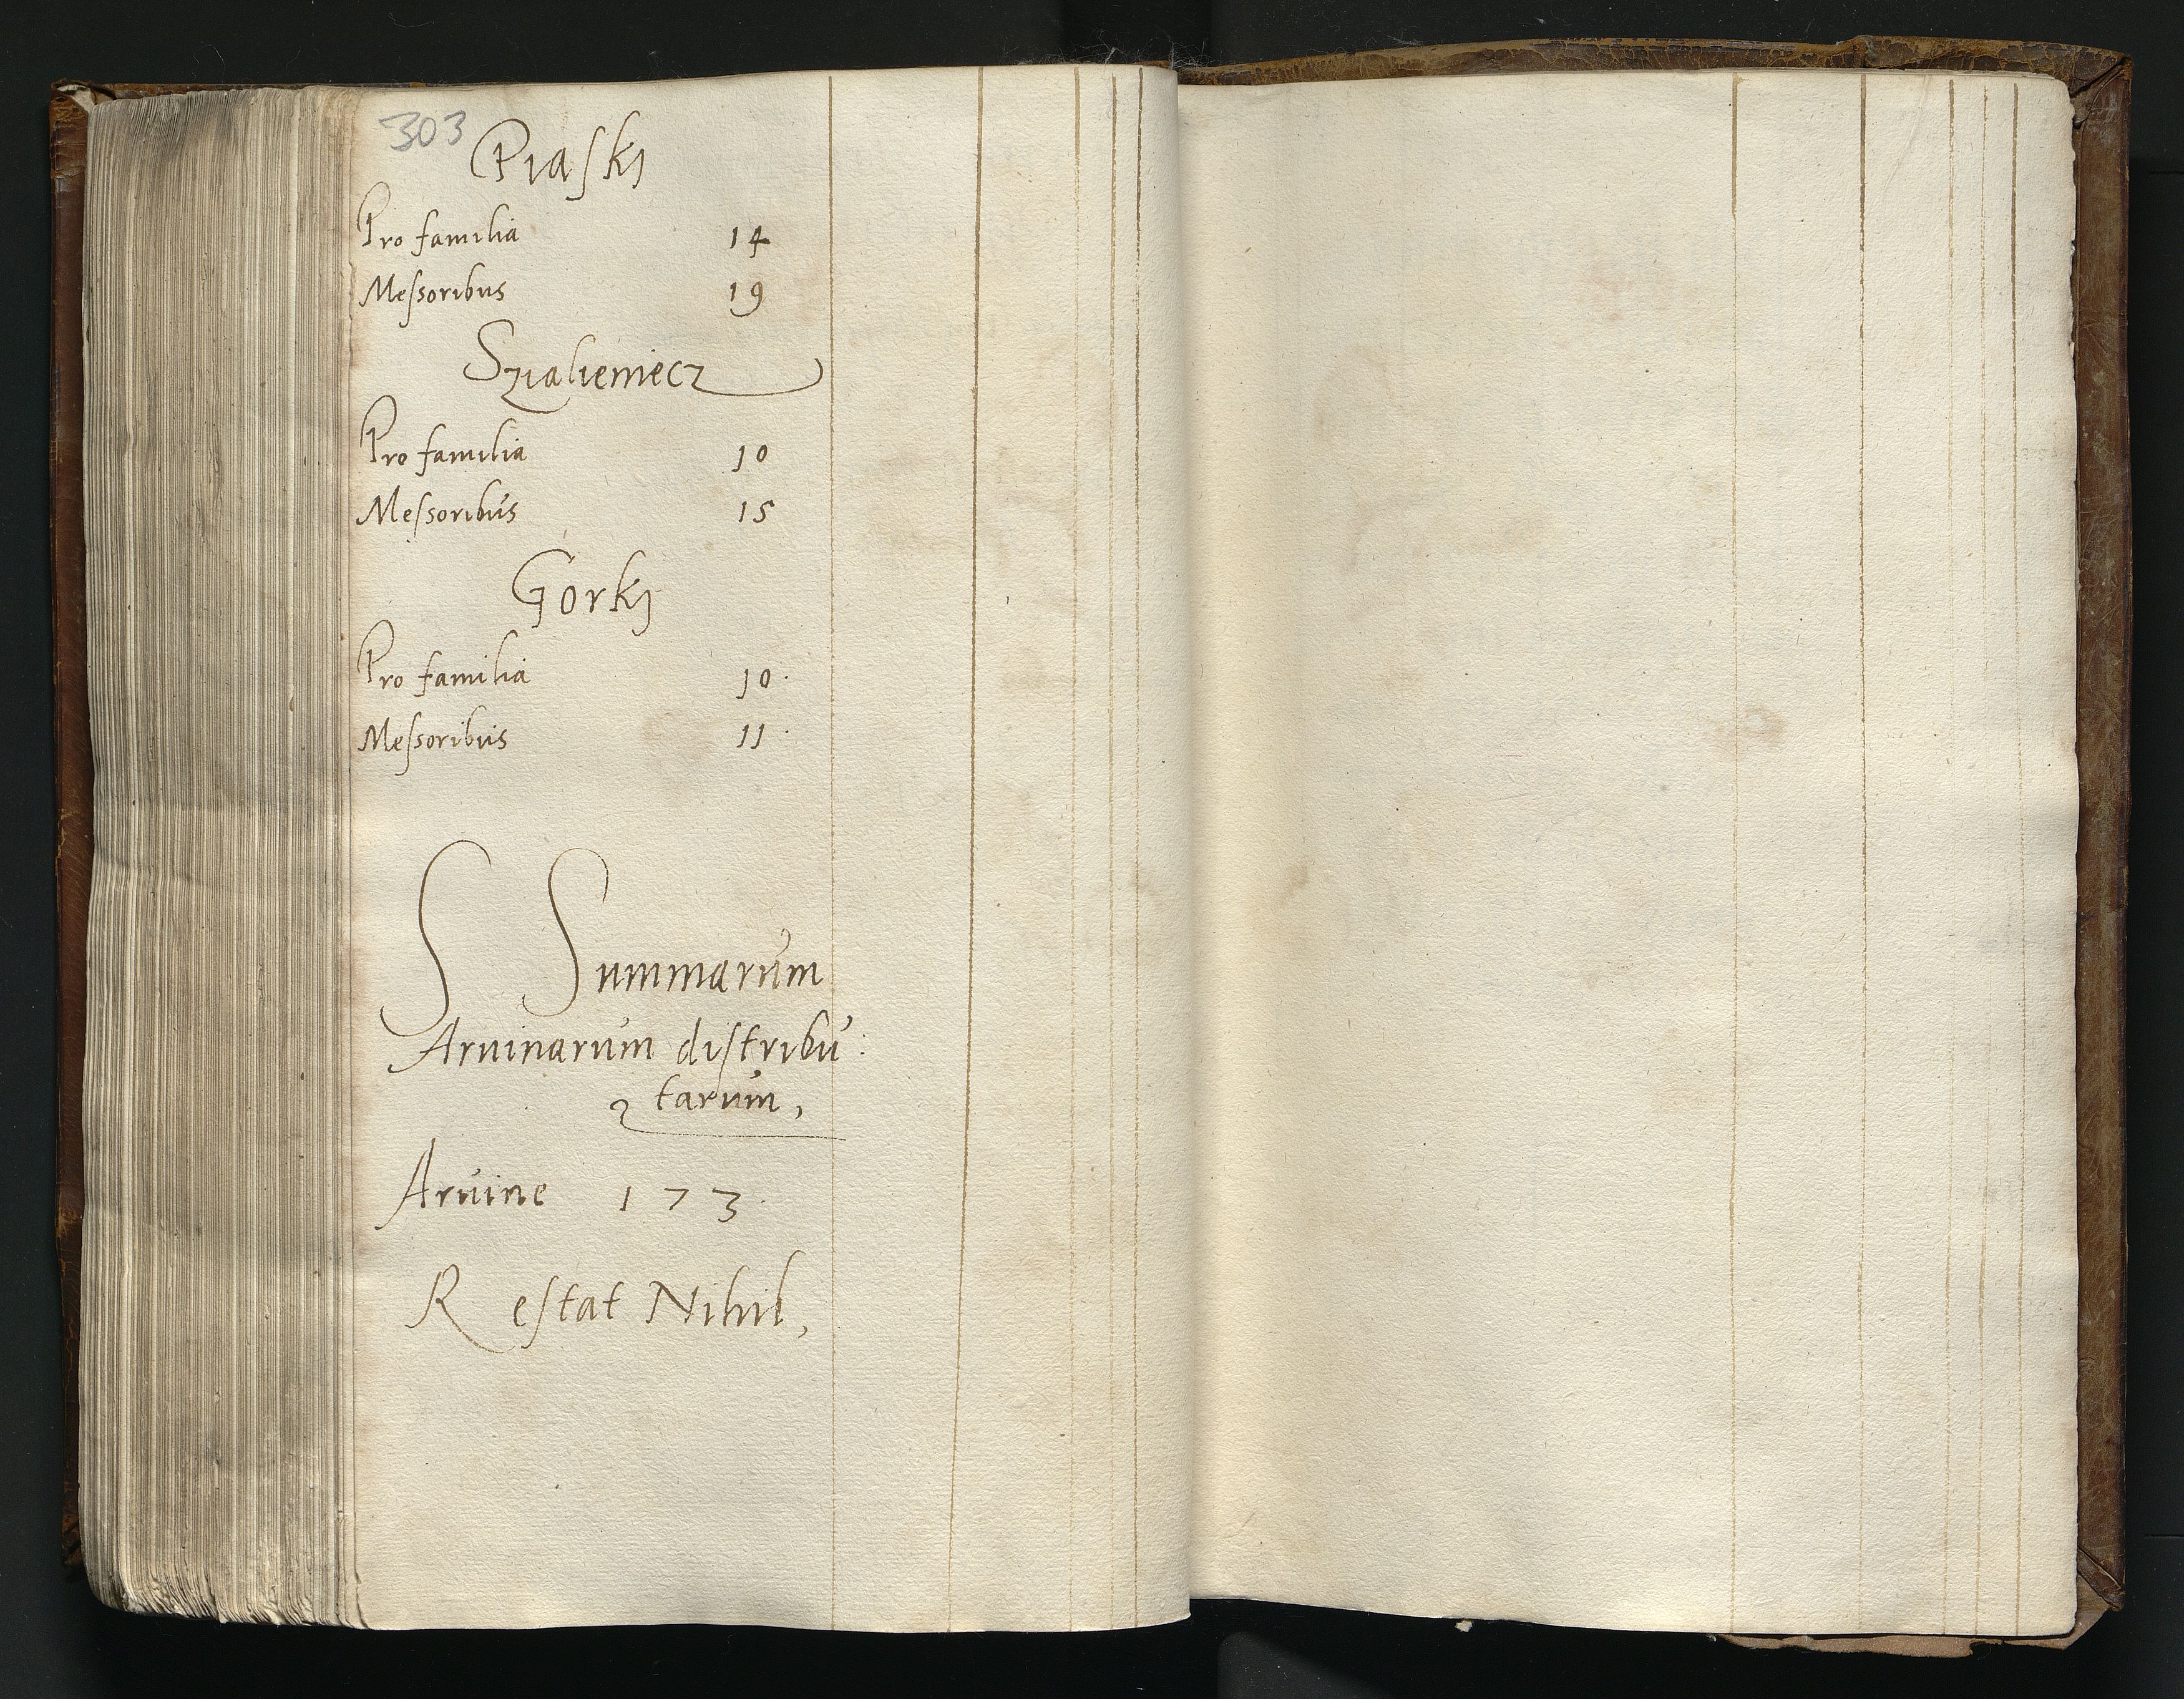 303
Piaski
Pro familia 14
Messoribus 19
Szialieniecz
Pro familia 10
Messoribus 15
Gorki
Pro familia 10.
Messoribus 11.
S Summarum
Aruinarum distribu:
tarum,
Aruine 173.
Restat Nihil,